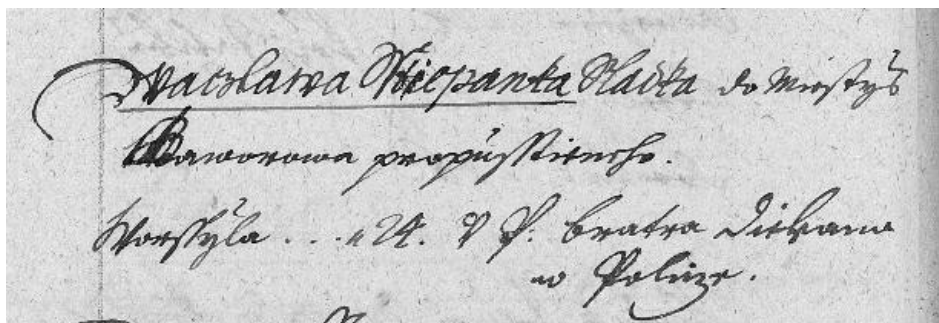 Waczlawa Sstiepanka Sladka do Miestys
Jaworowa propusstieneho.
Worssyla ... 24. V P. bratra Diekana
w Policze.